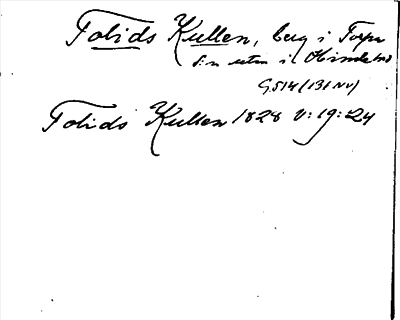 Tolids Kullen, berg i Torpa
sn utm i
G514 (131 NV)
Tolids Kullen 1828 V:19:24